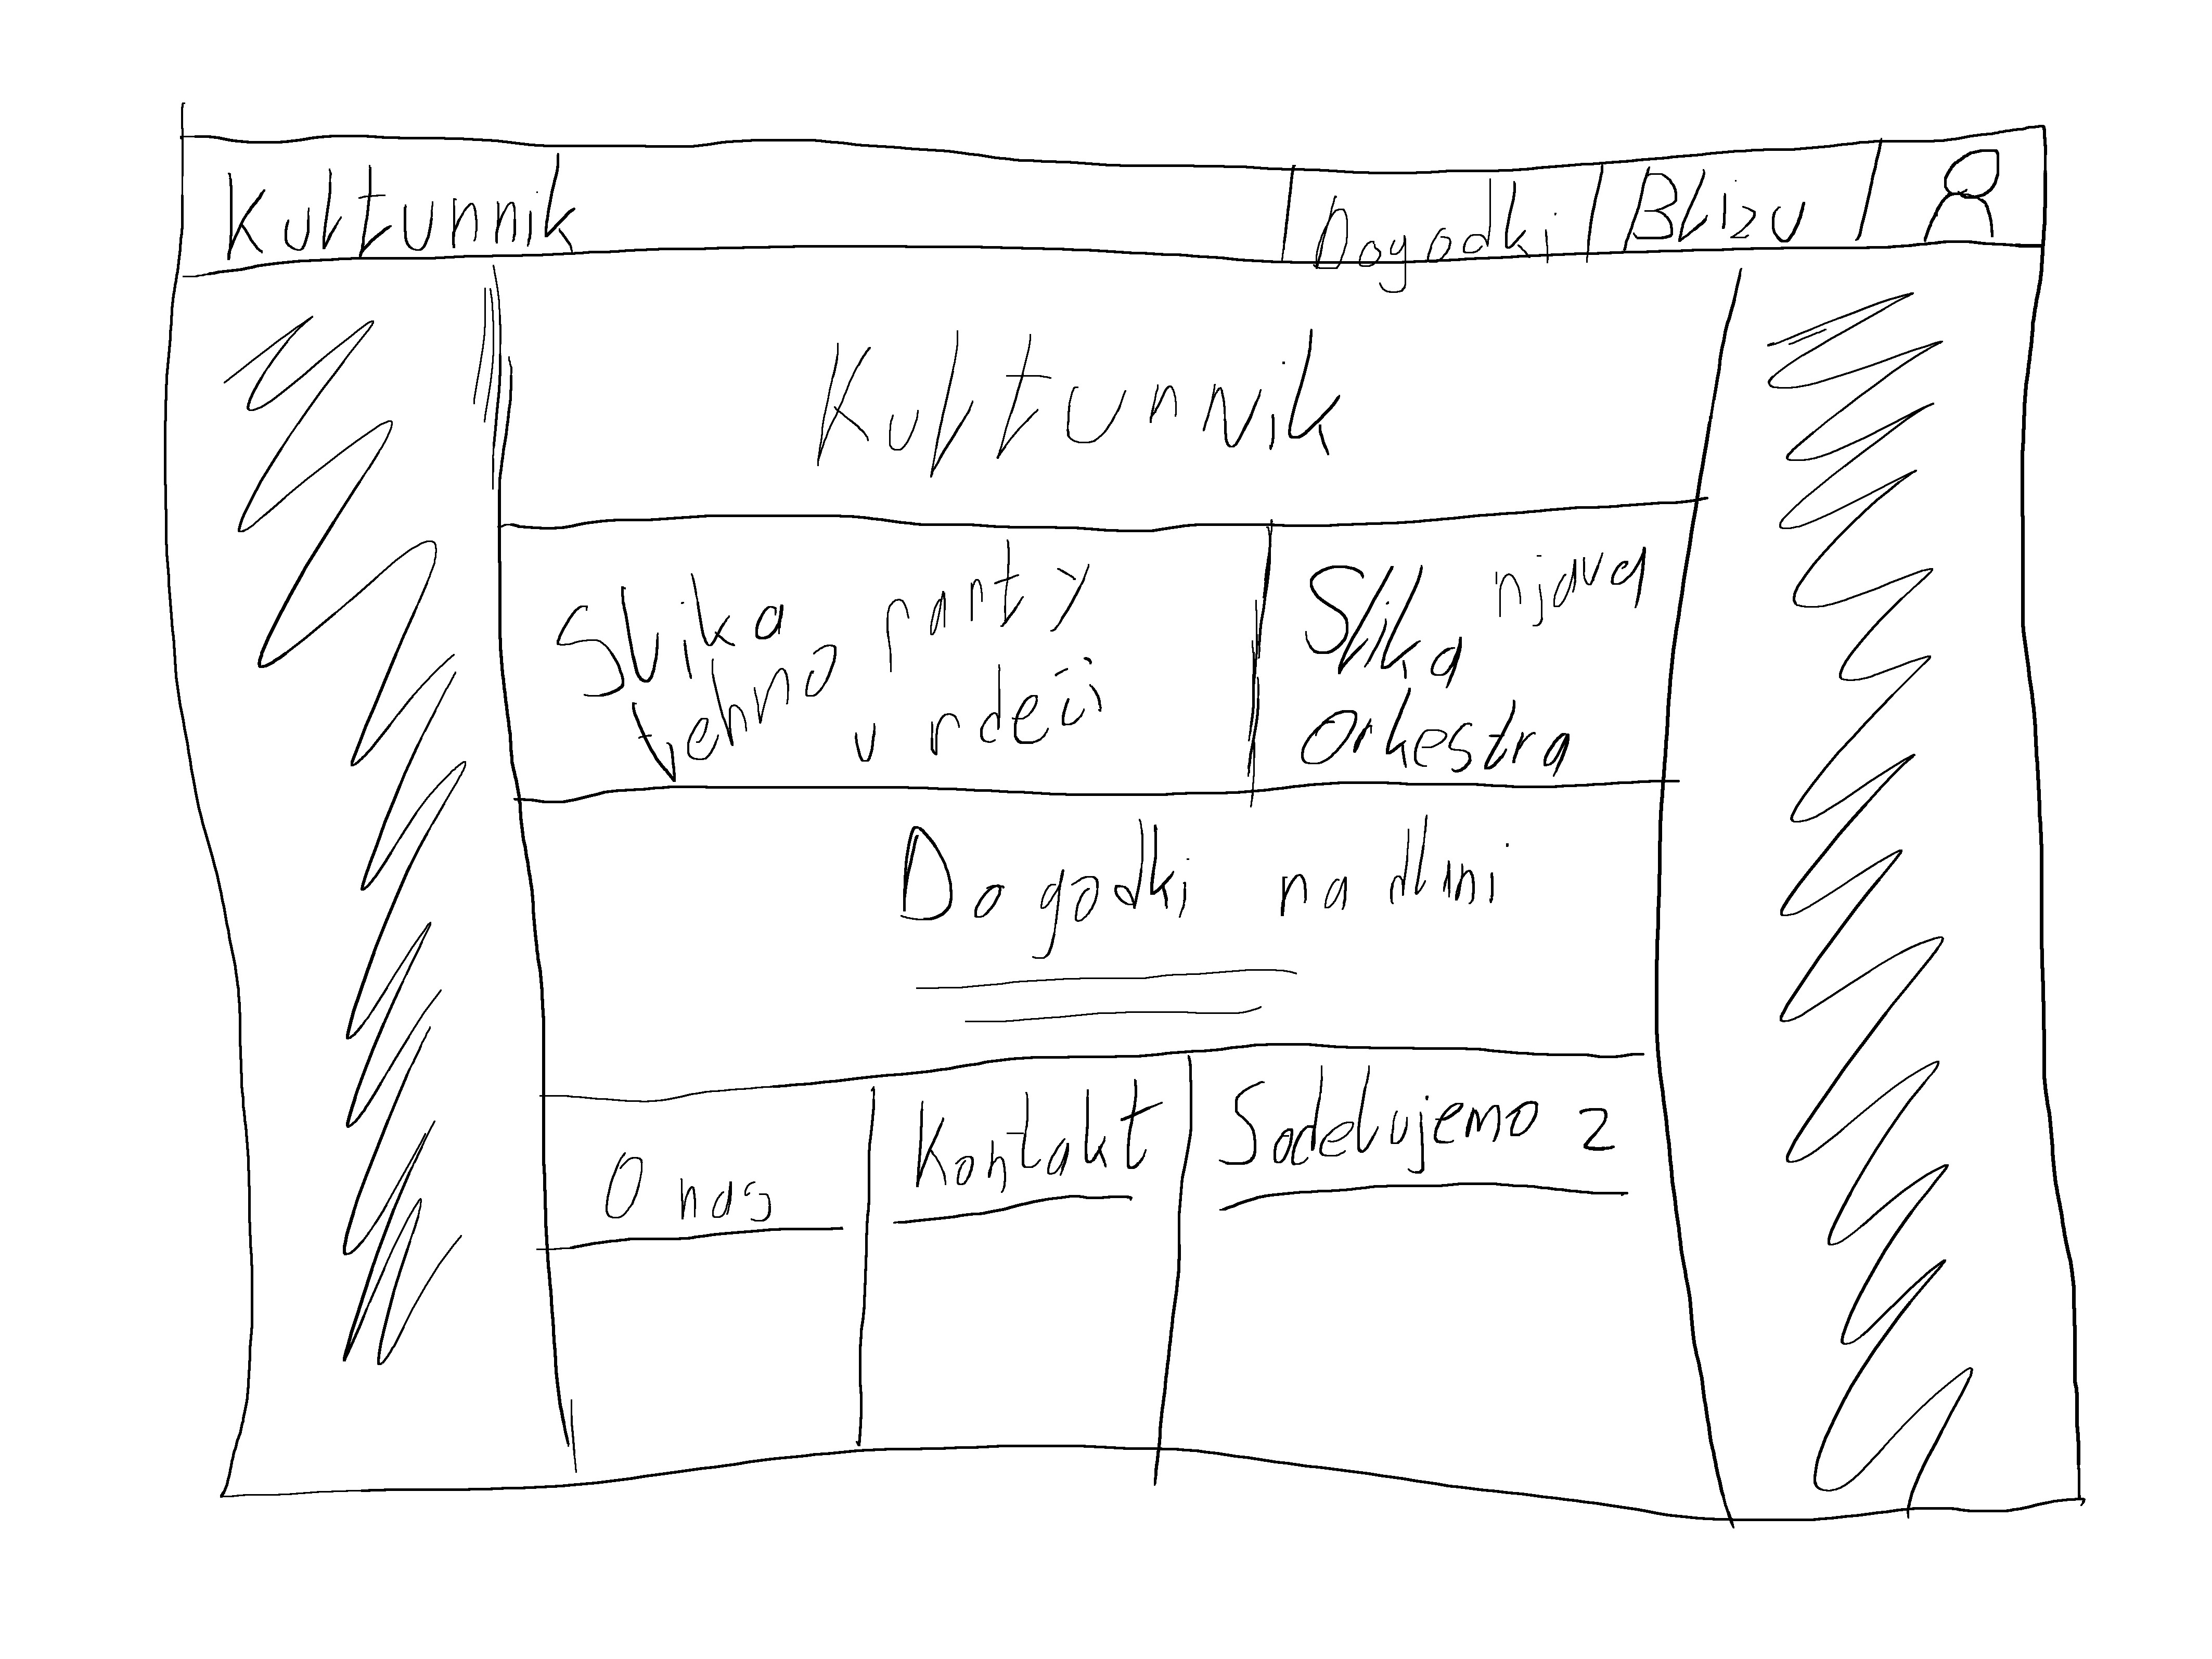 Kulturnik
Dogodki
Blizu
Kulturnik
Slika
tehno party
v rdeči
Slika rjava
Orkestra
Dogodki na dlani
O nas
Kontakt
Sodelujemo z